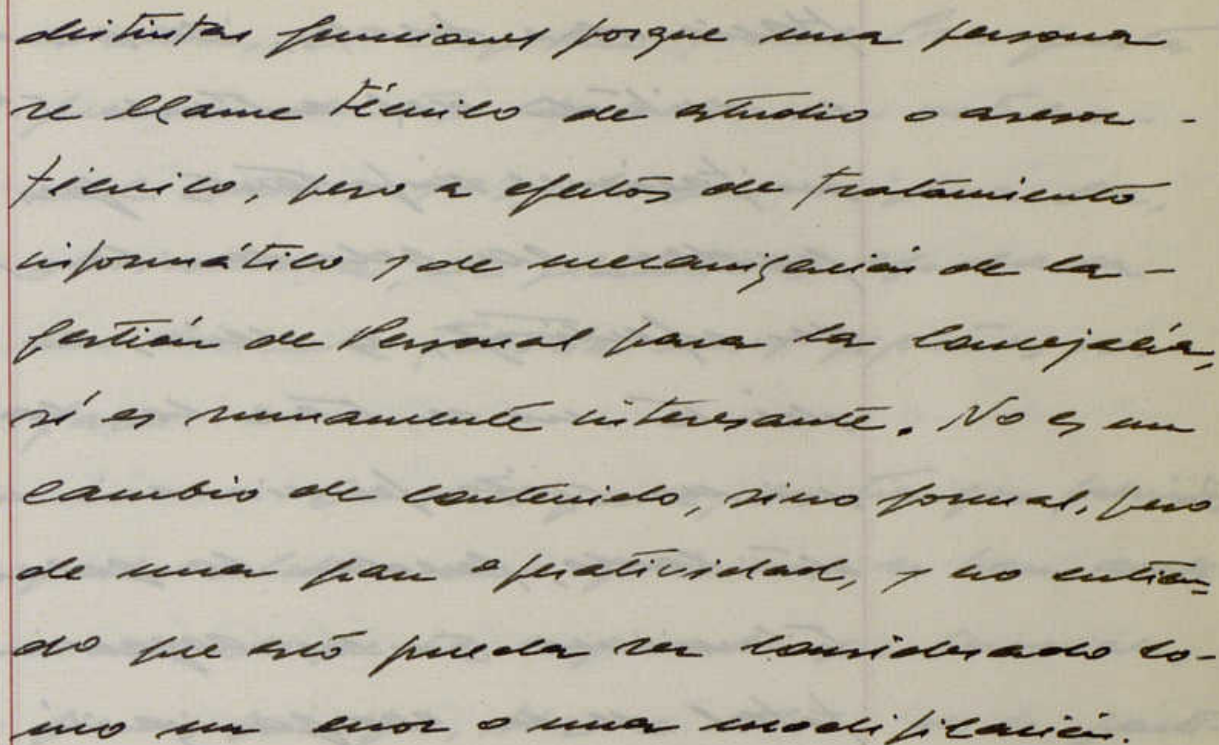 distintas funciones porque una persona
se llame técnico de estudio o asesor -
técnico, pero a efectos de tratamiento
informático y de mecanización de la -
gestión de Personal para la Concejalía,
sí es sumamente interesante. No es un
cambio de contenido, sino formal, pero
de una gran operatividad, y no entien=
do que esto pueda ser considerado co-
mo un error o una modificación.